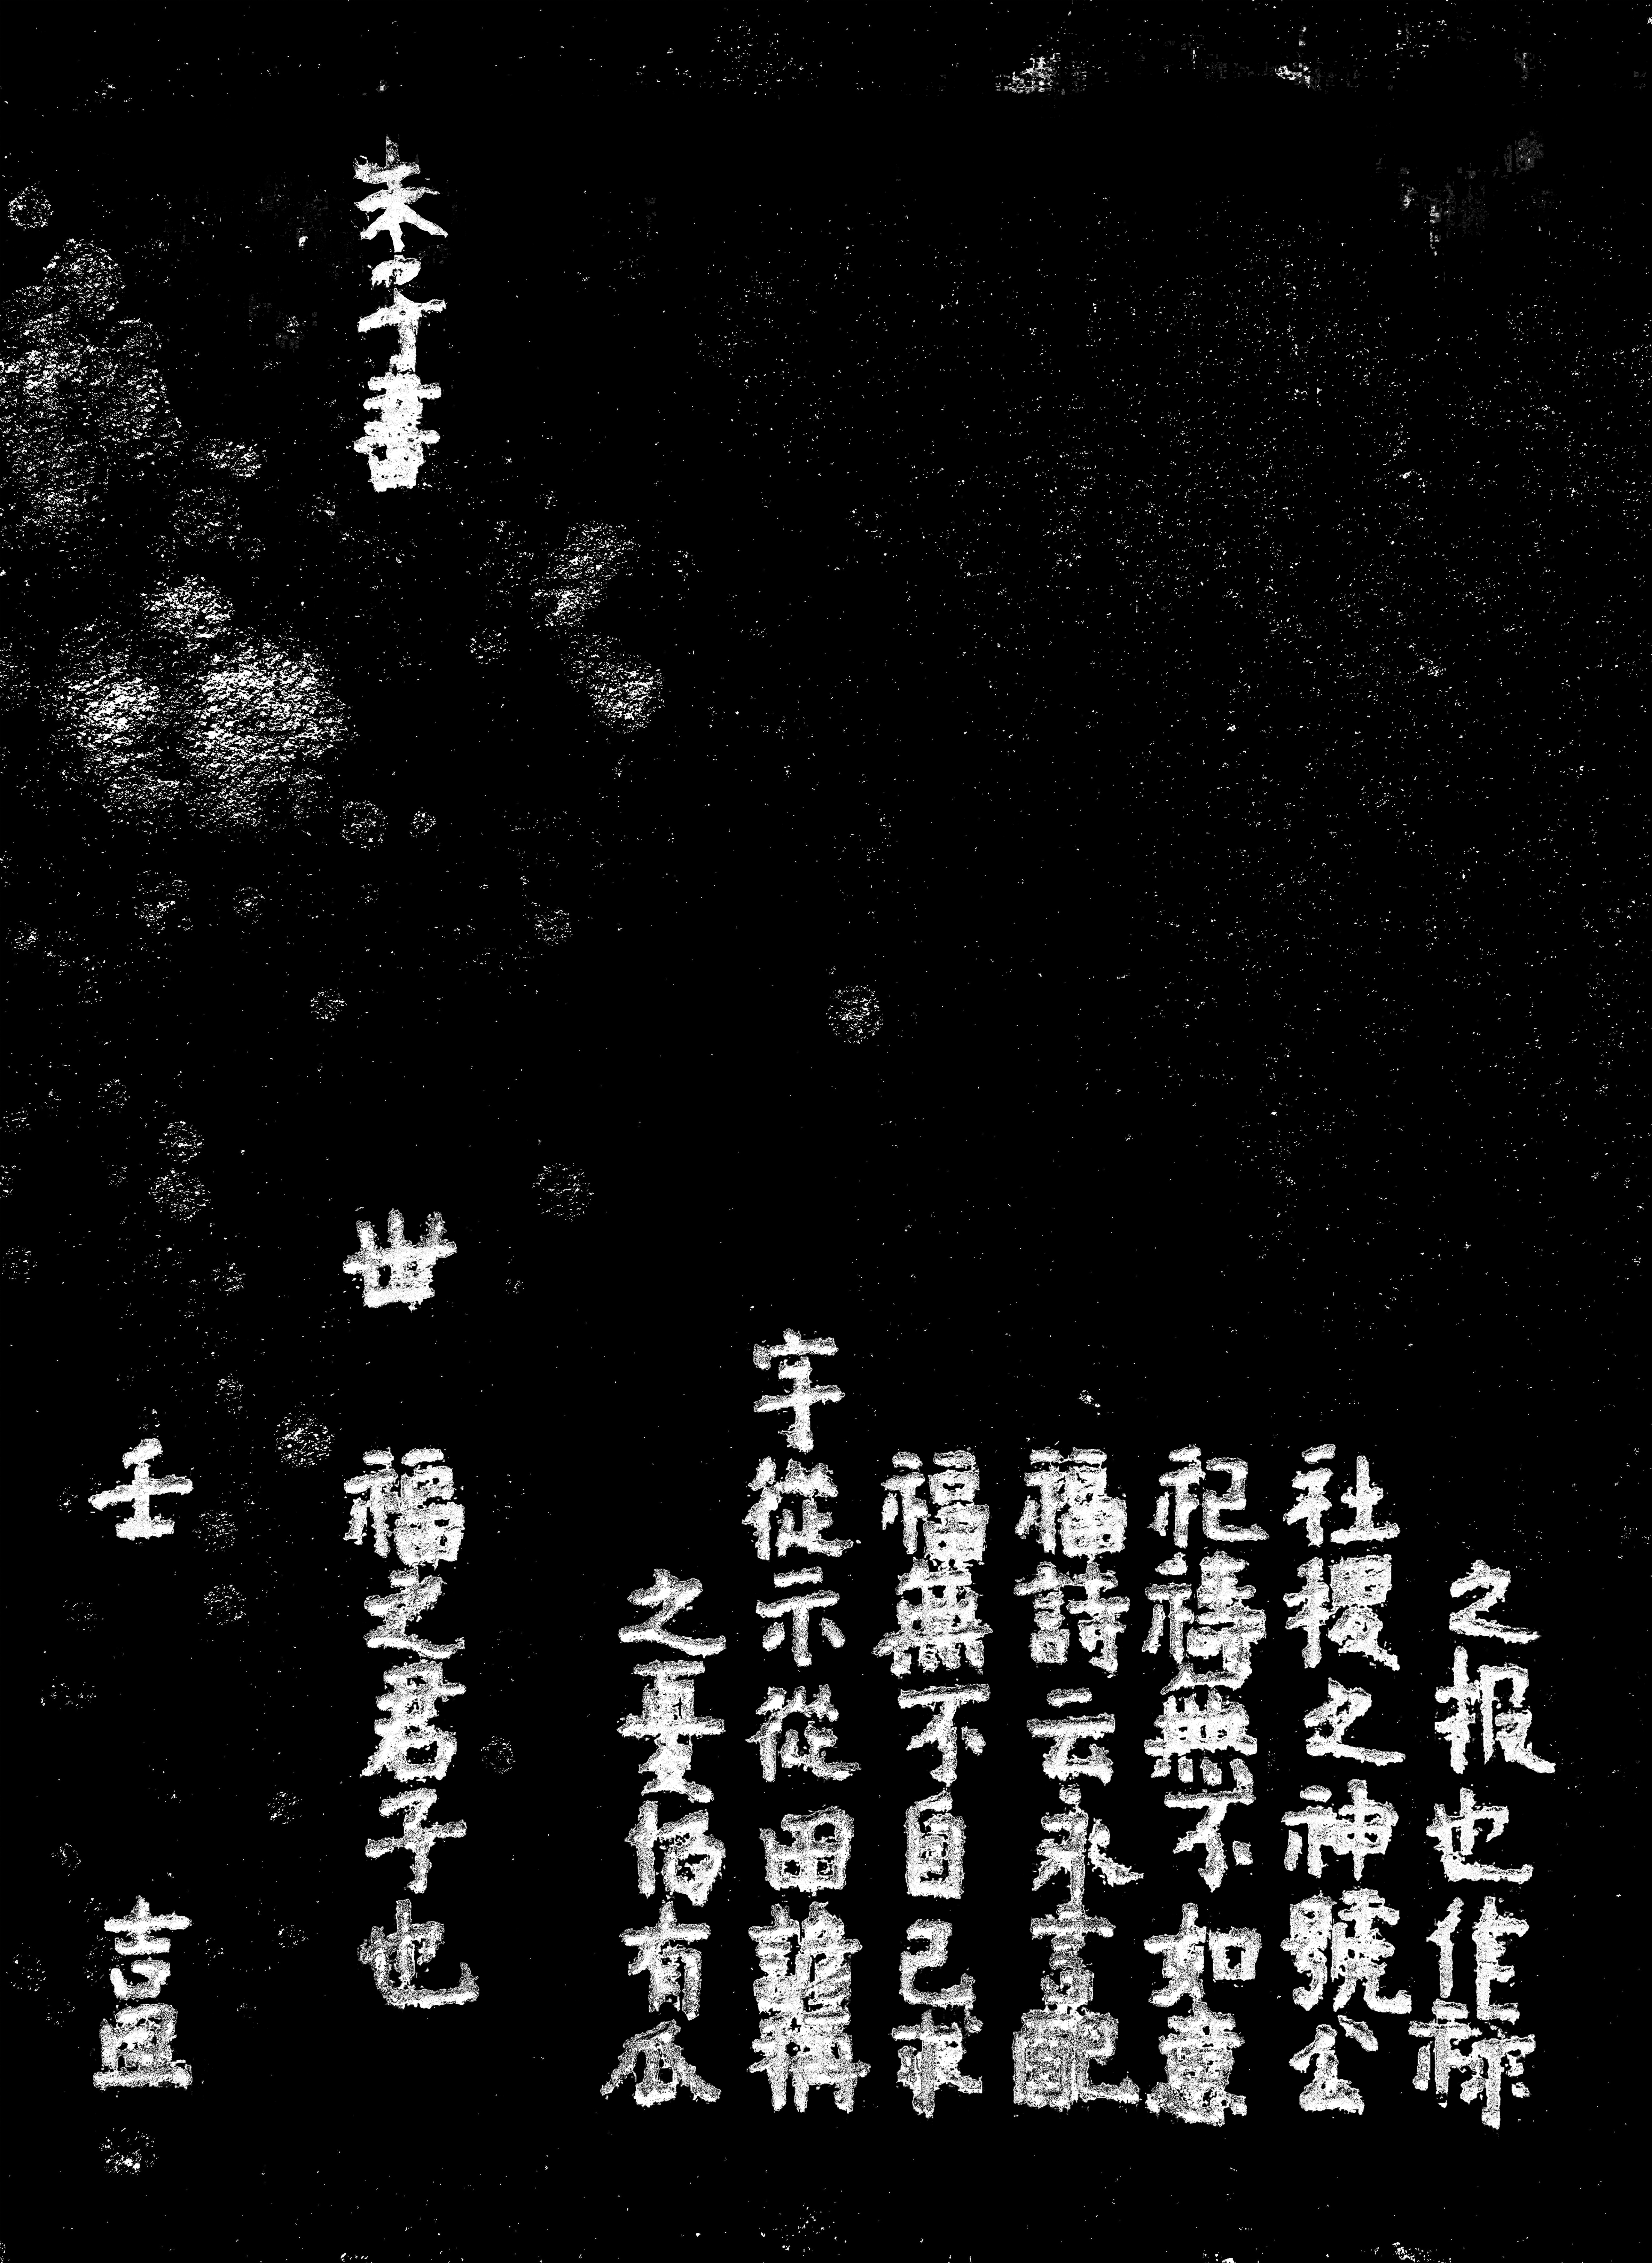 之报也作祿
社稷之神號公
祀禱無不如意
福詩云永言配
福無不自己求
字從示從田諺稱
之憂怕有瓜
朱子書 世 福之君子也
壬 吉